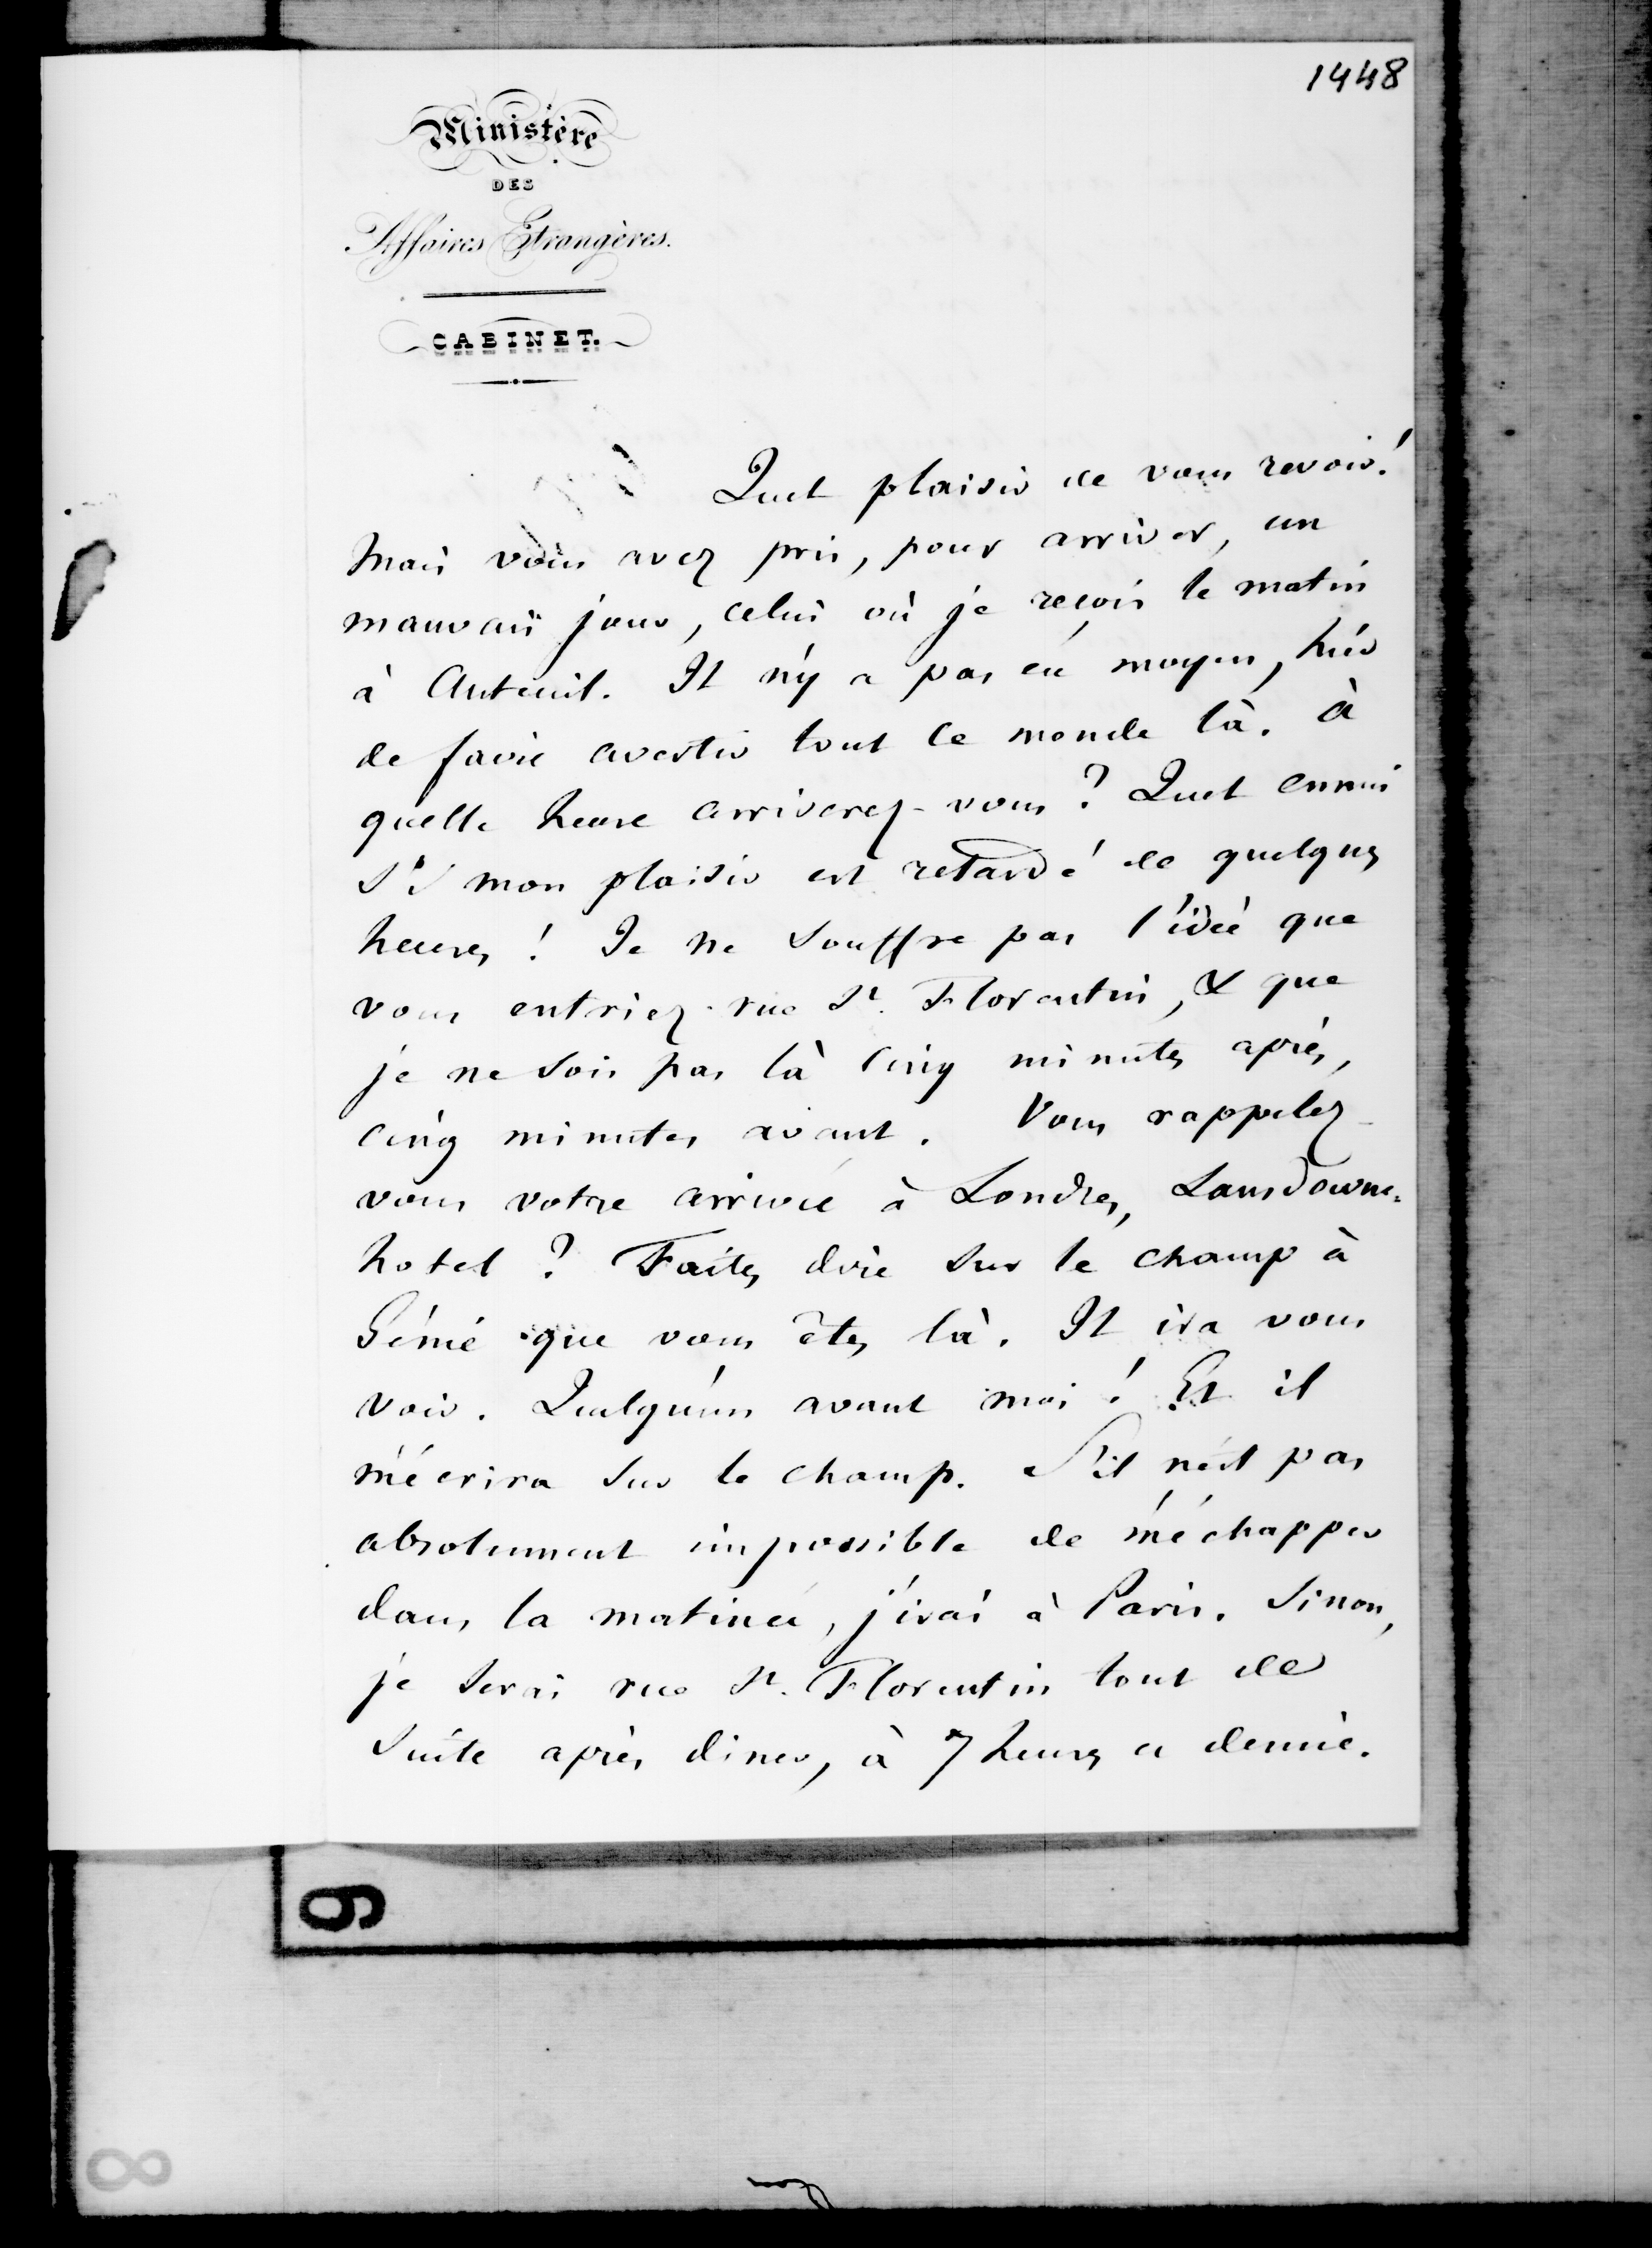 1448
Ministère
DES
Affaires Etrangères.
CABINET.
Quel plaisir de vous revoir!
Mais vous avez pris, pour arriver, un
mauvais jour, celui où je reçois le matin
à Auteuil. Il n'y a pas eu moyen, hier
de faire avertir tout ce monde là. À
quelle heure arriverez-vous? Quel ennui
si mon plaisir est retardé de quelques
heures! Je ne souffre pas l'idée que
vous entriez rue St. Florentin, & que
je ne sois pas là cinq minutes après,
cinq minutes avant. Vous rappelez-
vous votre arrivée à Londres, Lansdowne-
hotel? Faites dire sur le champ à
Génie que vous êtes là. Il ira vous
voir. Quelqu'un avant moi! Et il
m'écrira sur le champ. S'il n'est pas
absolument impossible de m'échapper
dans la matinée, j'irai à Paris. Sinon,
je serai rue St. Florentin tout de
suite après diner, à 7 heures et demie.
9
8